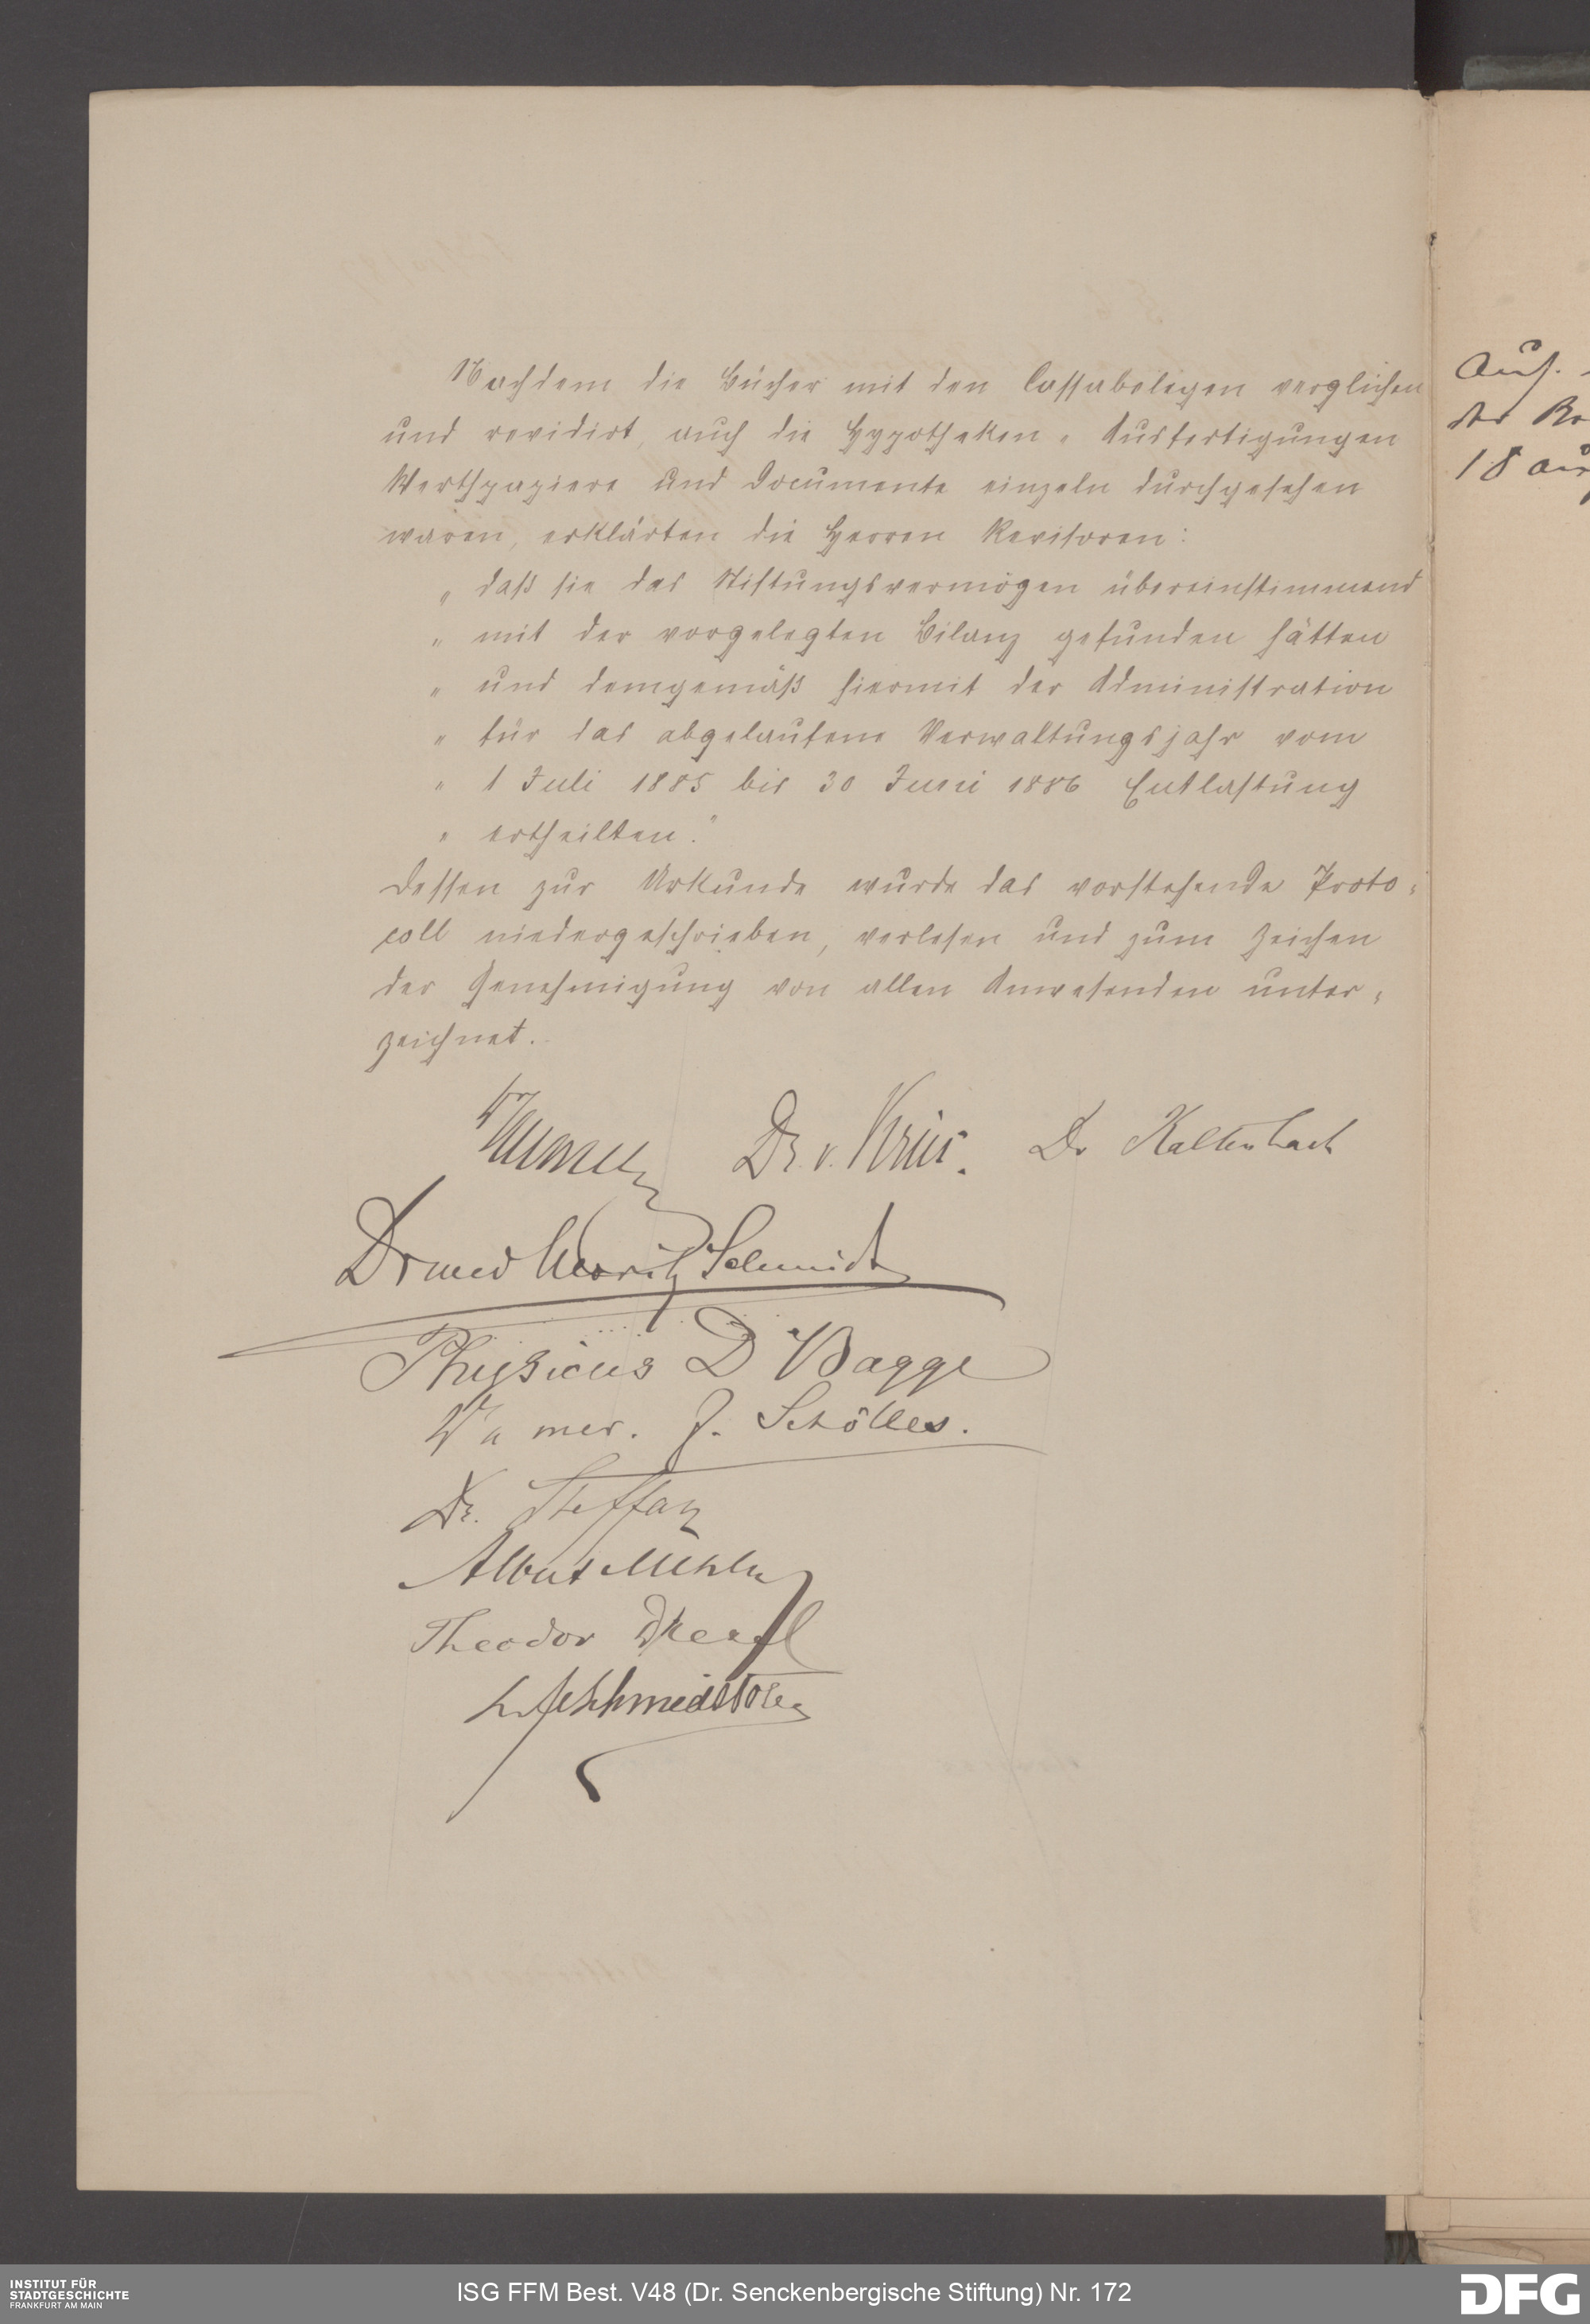 Nachdem die Bücher mit den Cassabelegen verglichen
und revidirt, auch die Hypotheken- Ausfertigungen
Werthpapiere und Documente einzeln durchgesehen
waren, erklärten die Herren Revisoren:
„ daß sie das Stiftungsvermögen übereinstimmend
„ mit der vorgelegten Bilanz gefunden hätten
„ und demgemäß hiermit der Administration
„ für das abgelaufene Verwaltungsjahr vom
„ 1 Juli 1885 bis 30 Juni 1886 Entlastung
„ ertheilten."
Dessen zur Urkunde wurde das vorstehende Proto-
coll niedergeschrieben, verlesen und zum Zeichen
der Genehmigung von allen Anwesenden unter-
zeichnet.
Dr. v. Dr Kaltenbach
Dr med Moritz Schmidt
Physicus Dr Bagge
J. Schölles.
Dr. Steffan
Albert
Theodor
Auf.
der
18
INSTITUT FÜR
STADTGESCHICHTE
FRANKFURT AM MAIN
ISG FFM Best. V48 (Dr. Senckenbergische Stiftung) Nr. 172
DFG